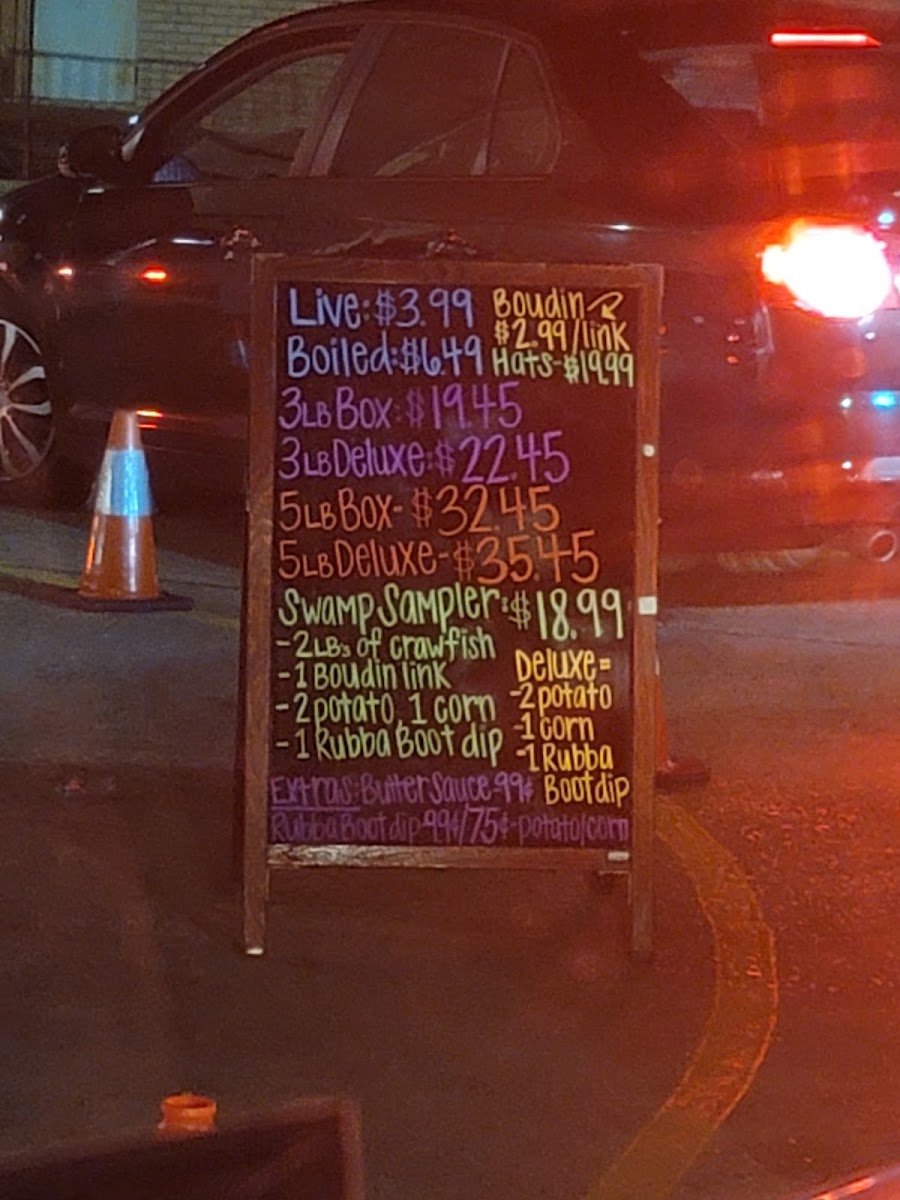 Live: $3.99
Boiled: $6.49
Boudin
$2.99/link
Hats-$19.99
3LB Box: $19.45
3LB Deluxe: $22.45
5LB Box- $32.45
5LB Deluxe-$35.45
Swamp Sampler: $18.99
-2LB's of crawfish
-1 Boudin link
-2 potato, 1 corn
-1 Rubba Boot dip
Deluxe=
-2 potato
-1 corn
-1 Rubba
Boot dip
Extras: Butter Sauce-99¢
Rubba Boot dip-99¢/75¢-potato/corn